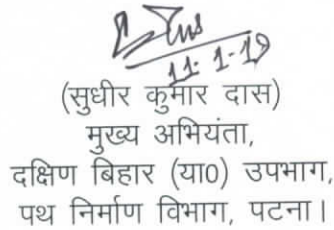 11.1.19
(सुधीर कुमार दास)
मुख्य अभियंता,
दक्षिण बिहार (या0) उपभाग,
पथ निर्माण विभाग, पटना।